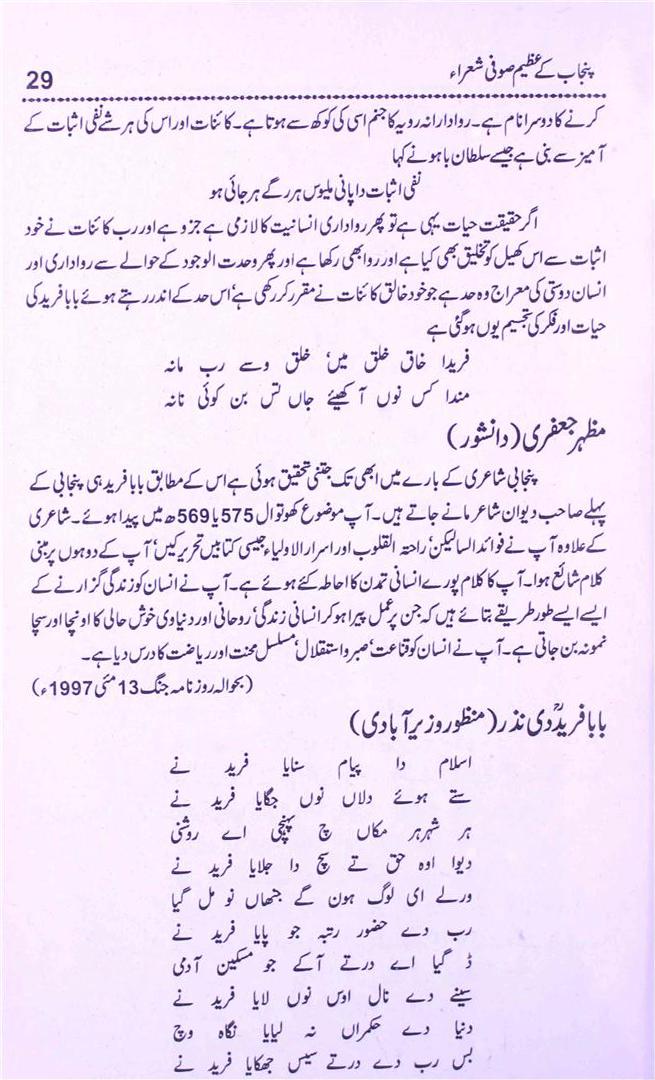 پنجاب کے عظیم صوفی شعراء
29
کرنے کا دوسرا نام ہے۔ روادارانہ رویہ کا جنم اسی کی کوکھ سے ہوتا ہے۔ کائنات اور اس کی ہر شے نفی اثبات کے
آمیز سے بنی ہے جیسے سلطان باہو نے کہا
نفی اثبات دا پانی ملیوس ہر رگے ہر جائی ہو
اگر حقیقت حیات یہی ہے تو پھر رواداری انسانیت کا لازمی ہے جزو ہے اور رب کائنات نے خود
اثبات سے اس کھیل کو تخلیق بھی کیا ہے اور روا بھی رکھا ہے اور پھر وحدت الوجود کے حوالے سے رواداری اور
انسان دوستی کی معراج وہ حد ہے جو خود خالق کائنات نے مقرر کر رکھی ہے، اس حد کے اندر رہتے ہوئے بابا فرید کی
حیات اور فکر کی تجسیم یوں ہو گئی ہے
فریدا خاق خلق میں، خلق وسے رب مانہ
مندا کس نوں آکھیئے جاں تس بن کوئی نانہ
مظہر جعفری (دانشور)
پنجابی شاعری کے بارے میں ابھی تک جتنی تحقیق ہوئی ہے اس کے مطابق بابا فرید ہی پنجابی کے
پہلے صاحب دیوان شاعر مانے جاتے ہیں۔ آپ موضوع کھوتوال 575 یا 569ھ میں پیدا ہوئے۔ شاعری
کے علاوہ آپ نے فوائد السالکین، راحتہ القلوب اور اسرار الاولیاء جیسی کتابیں تحریر کیں، آپ کے دوہوں پر مبنی
کلام شائع ہوا۔ آپ کا کلام پورے انسانی تمدن کا احاطہ کئے ہوئے ہے۔ آپ نے انسان کو زندگی گزارنے کے
ایسے ایسے طور طریقے بتائے ہیں کہ جن پر عمل پیرا ہو کر انسانی زندگی، روحانی اور دنیاوی خوش حالی کا اونچا اور سچا
نمونہ بن جاتی ہے۔ آپ نے انسان کو قناعت، صبر و استقلال، مسلسل محنت اور ریاضت کا درس دیا ہے۔
(بحوالہ روزنامہ جنگ 13 مئی 1997ء)
بابا فریدؒ دی نذر (منظور وزیر آبادی)
اسلام دا پیام سنایا فرید نے
ستے ہوئے دلاں نوں جگایا فرید نے
ہر شہر ہر مکاں چ پہنچی اے روشنی
دیوا اوہ حق تے سچ دا جلایا فرید نے
ورلے ای لوگ ہون گے جنھاں نو مل گیا
رب دے حضور رتبہ جو پایا فرید نے
ڈگیا اے در تے آکے جو مسکین آدمی
سینے دے نال اوس نوں لایا فرید نے
دنیا دے حکمراں نہ لیایا نگاہ وچ
بس رب دے در تے سیس جھکایا فرید نے